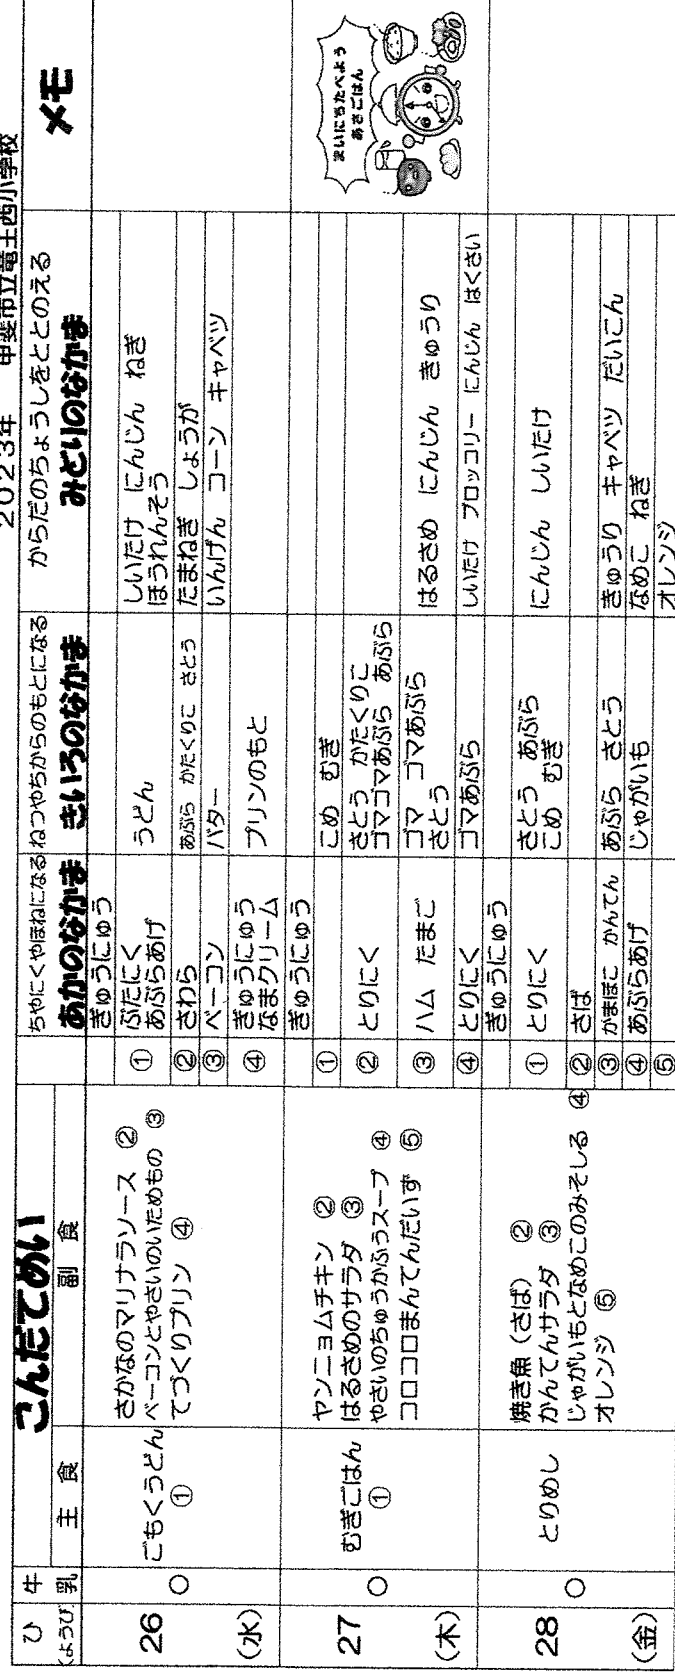 2023年 甲斐市立竜王西小学校
ひ
(ようび)
牛
乳
こんだてめい
主 食
副 食
ちやにくやほねになる
あかのなかま
ねつやちからのもとになる
きいろのなかま
からだのちょうしをととのえる
みどりのなかま
メモ
26
(水)
○
ごもくうどん
①
さかなのマリナラソース ②
ベーコンとやさいのいためもの ③
てづくりプリン ④
ぎゅうにゅう
① ぶたにく
あぶらあげ
うどん
しいたけ にんじん ねぎ
ほうれんそう
② さわら
あぶら かたくりこ さとう
たまねぎ しょうが
③ ベーコン
バター
いんげん コーン キャベツ
④ ぎゅうにゅう
なまクリーム
プリンのもと
27
(木)
○
むぎごはん
①
ヤンニョムチキン ②
はるさめのサラダ ③
やさいのちゅうかふうスープ ④
コロコロまんてんだいず ⑤
ぎゅうにゅう
① こめ むぎ
② とりにく
さとう かたくりこ
ゴマゴマあぶら あぶら
③ ハム たまご
ゴマ ゴマあぶら
さとう
はるさめ にんじん きゅうり
④ とりにく
ゴマあぶら
しいたけ ブロッコリー にんじん はくさい
まいにちたべよう
あさごはん
28
(金)
○
とりめし
焼き魚(さば) ②
かんてんサラダ ③
じゃがいもとなめこのみそしる ④
オレンジ ⑤
ぎゅうにゅう
① とりにく
さとう あぶら
こめ むぎ
にんじん しいたけ
② さば
③ かまぼこ かんてん
あぶら さとう
きゅうり キャベツ だいこん
④ あぶらあげ
じゃがいも
なめこ ねぎ
⑤
オレンジ